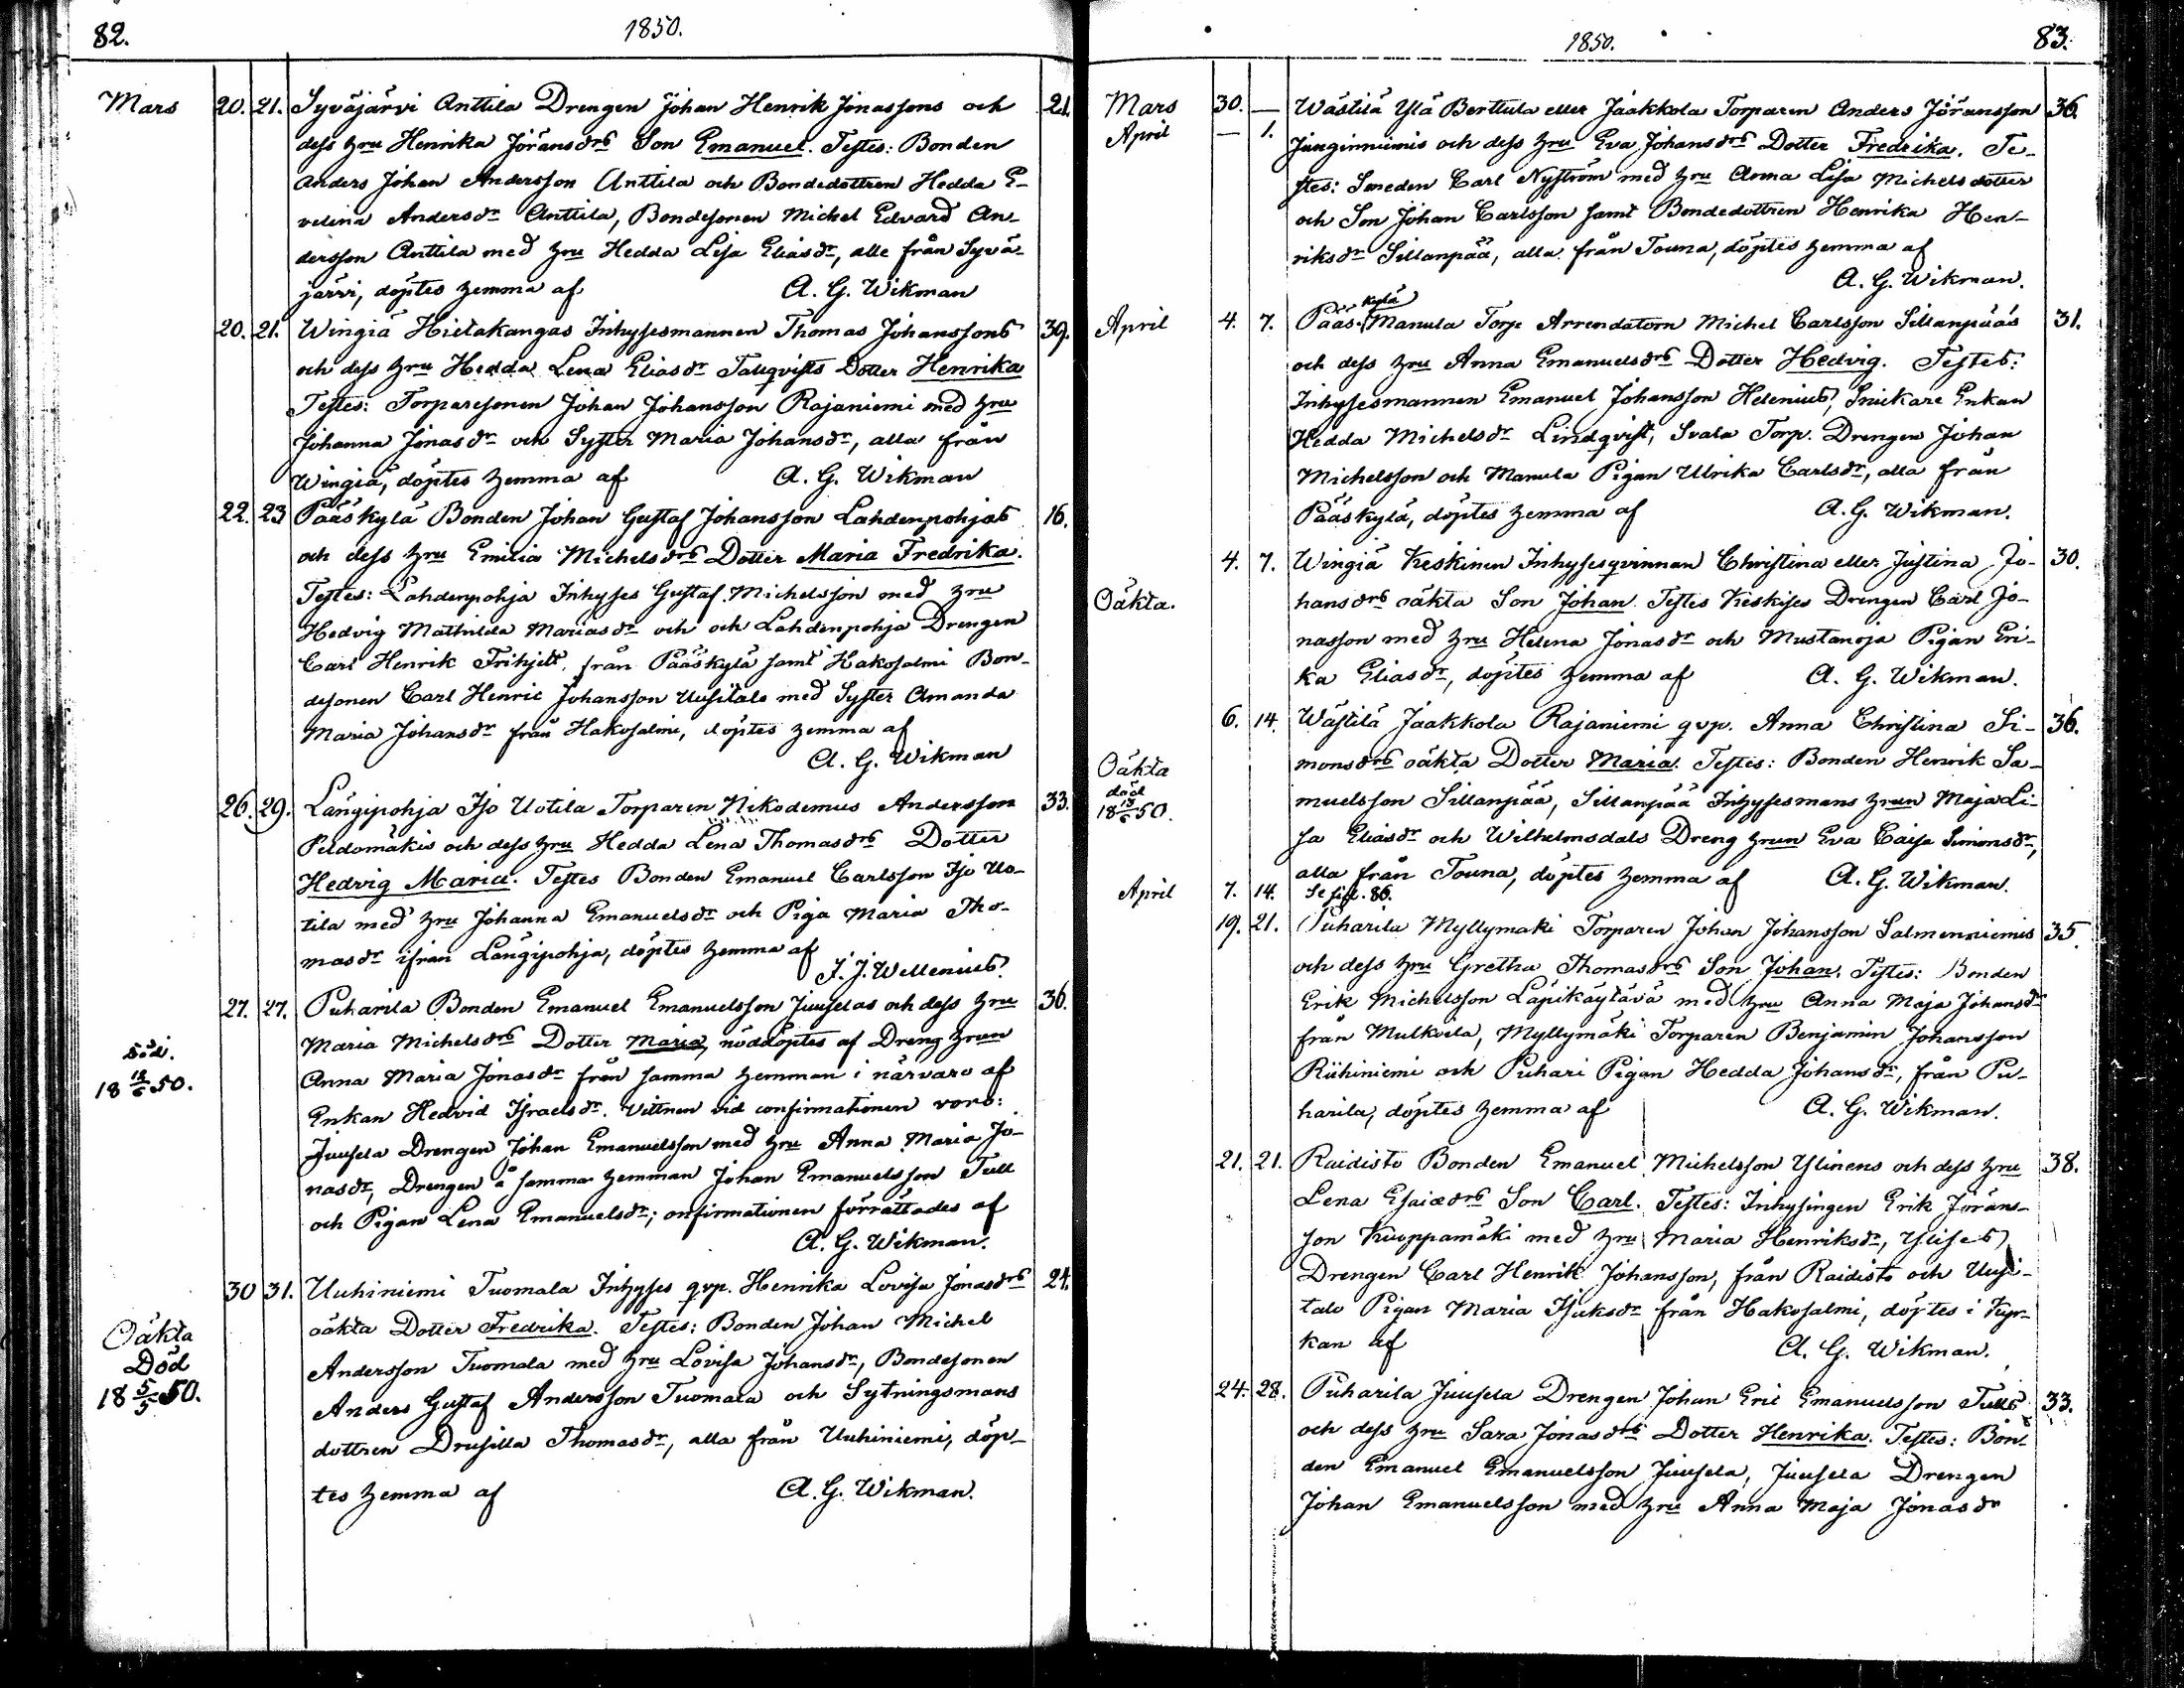 82.
1850.
Mars 20. 21. Syväjärvi Anttila Drengen Johan Henrik Jonassons och 21.
dess hru Henrika Jöransdrs Son Emanuel. Testes: Bonden
Anders Johan Andersson Anttila och Bondedottren Hedda E-
velina Andersdr Anttila, Bondesonen Michel Edvard An-
dersson Anttila med hru Hedda Lisa Eliasdr, alle från Syvä-
järvi, döptes hemma af A. G. Wikman
20. 21. Wingiä Hietakangas Inhysesmannen Thomas Johanssons 39.
och dess hru Hedda Lena Eliasdr Tallqvists Dotter Henrika
Testes: Torparesonen Johan Johansson Rajaniemi med hru
Johanna Jonasdr och Syster Maria Johansdr, alla från
Wingiä, döptes hemma af A. G. Wikman
22. 23 Pääskylä Bonden Johan Gustaf Johansson Lahdenpohjas 16.
och dess hru Emilia Michelsdrs Dotter Maria Fredrika.
Testes: Lahdenpohja Inhyses Gustaf Michelsson med hru
Hedvig Mathilda Mariasdr och och Lahdenpohja Drengen
Carl Henrik Frihjelt, från Pääskylä samt Hakosalmi Bon-
desonen Carl Henric Johansson Uusitalo med Syster Amanda
Maria Johansdr från Hakosalmi, döptes hemma af
A. G. Wikman
26. 29. Längipohja Iso Uotila Torparen Nikodemus Andersson 33.
Peldomäkis och dess hru Hedda Lena Thomasdrs Dotter
Hedvig Maria. Testes Bonden Emanuel Carlsson Iso Uo-
tila med hru Johanna Emanuelsdr och Piga Maria Tho-
masdr ifrån Längipohja, döptes hemma af
J. J. Wellenius.
27. 27. Puharila Bonden Emanuel Emanuelsson Juuselas och dess hru 36.
Maria Michelsdrs Dotter Maria, nöddöptes af Dreng hrun
Anna Maria Jonasdr från samma hemman i närvaro af
Enkan Hedvid Israelsdr. Vittnen vid confirmationen voro:
Juusela Drengen Johan Emanuelsson med hru Anna Maria Jo-
nasdr, Drengen å samma hemman Johan Emanuelsson Tull
och Pigan Lena Emanuelsdr; onfirmationen förrättades af
A. G. Wikman.
död.
18 13/6 50.
30 31. Uuhiniemi Tuomala Inhyses qvp. Henrika Lovisa Jonasdrs 24.
oäkta Dotter Fredrika. Testes: Bonden Johan Michel
Andersson Tuomala med hru Lovisa Johansdr, Bondesonen
Anders Gustaf Andersson Tuomala och Sytningsmans
dottren Drusilla Thomasdr, alla från Uuhiniemi, döp-
tes hemma af A. G. Wikman.
Oäkta
Död
18 5/5 50.
1850.
83.
Mars 30. — Wästilä Ylä Berttula eller Jaakkola Torparen Anders Jöransson 36.
April — 1. Janginniemis och dess hru Eva Johansdrs Dotter Fredrika. Te-
stes: Smeden Carl Nyström med hru Anna Lisa Michelsdotter
och Son Johan Carlsson samt Bondedottren Henrika Hen-
riksdr Sillanpää, alla från Touna, döptes hemma af
A. G. Wikman.
April 4. 7. Pääskylä Manula Torp Arrendatorn Michel Carlsson Sillanpääs 31.
och dess hru Anna Emanuelsdrs Dotter Hedvig. Testes:
Inhysesmannen Emanuel Johansson Helenius, Snickare Enkan
Hedda Michelsdr Lindqvist, Svala Torp. Drengen Johan
Michelsson och Manula Pigan Ulrika Carlsdr, alla från
Pääskylä, döptes hemma af A. G. Wikman.
4. 7. Wingiä Keskinen Inhysesqvinnan Christina eller Justina Jo- 30.
Oäkta. hansdrs oäkta Son Johan. Testes Keskises Drengen Carl Jo-
nasson med hru Helena Jonasdr och Mustanoja Pigan Eri-
ka Eliasdr, döptes hemma af A. G. Wikman.
6. 14. Wästilä Jaakkola Rajaniemi qvp. Anna Christina Si- 36.
Oäkta monsdrs oäkta Dotter Maria. Testes: Bonden Henrik Sa-
död muelsson Sillanpää, Sillanpää Inhysesmans hrun Maja Li-
18 13/6 50. sa Eliasdr och Wilhelmsdals Dreng hrun Eva Caisa Simonsdr,
alla från Touna, döptes hemma af A. G. Wikman.
April 7. 14. Se sid. 86.
19. 21. Puharila Myllymäki Torparen Johan Johansson Salmenniemis 35.
och dess hru Gretha Thomasdrs Son Johan. Testes: Bonden
Erik Michelsson Läpikäytävä med hru Anna Maja Johansdr
från Mulkoila, Myllymäki Torparen Benjamin Johansson
Riihiniemi och Puhari Pigan Hedda Johansdr, från Pu-
harila, döptes hemma af A. G. Wikman.
21. 21. Raidisto Bonden Emanuel Michelsson Ylinens och dess hru 38.
Lena Esaiædrs Son Carl. Testes: Inhysingen Erik Jörans-
son Kuoppamäki med hru Maria Henriksdr, Ylises
Drengen Carl Henrik Johansson, från Raidisto och Uusi-
talo Pigan Maria Isaksdr från Hakosalmi, döptes i Kyr-
kan af A. G. Wikman.
24. 28. Puharila Juusela Drengen Johan Eric Emanuelsson Tulls 33.
och dess hru Sara Jonasdrs Dotter Henrika. Testes: Bon-
den Emanuel Emanuelsson Juusela, Juusela Drengen
Johan Emanuelsson med hru Anna Maja Jonasdr